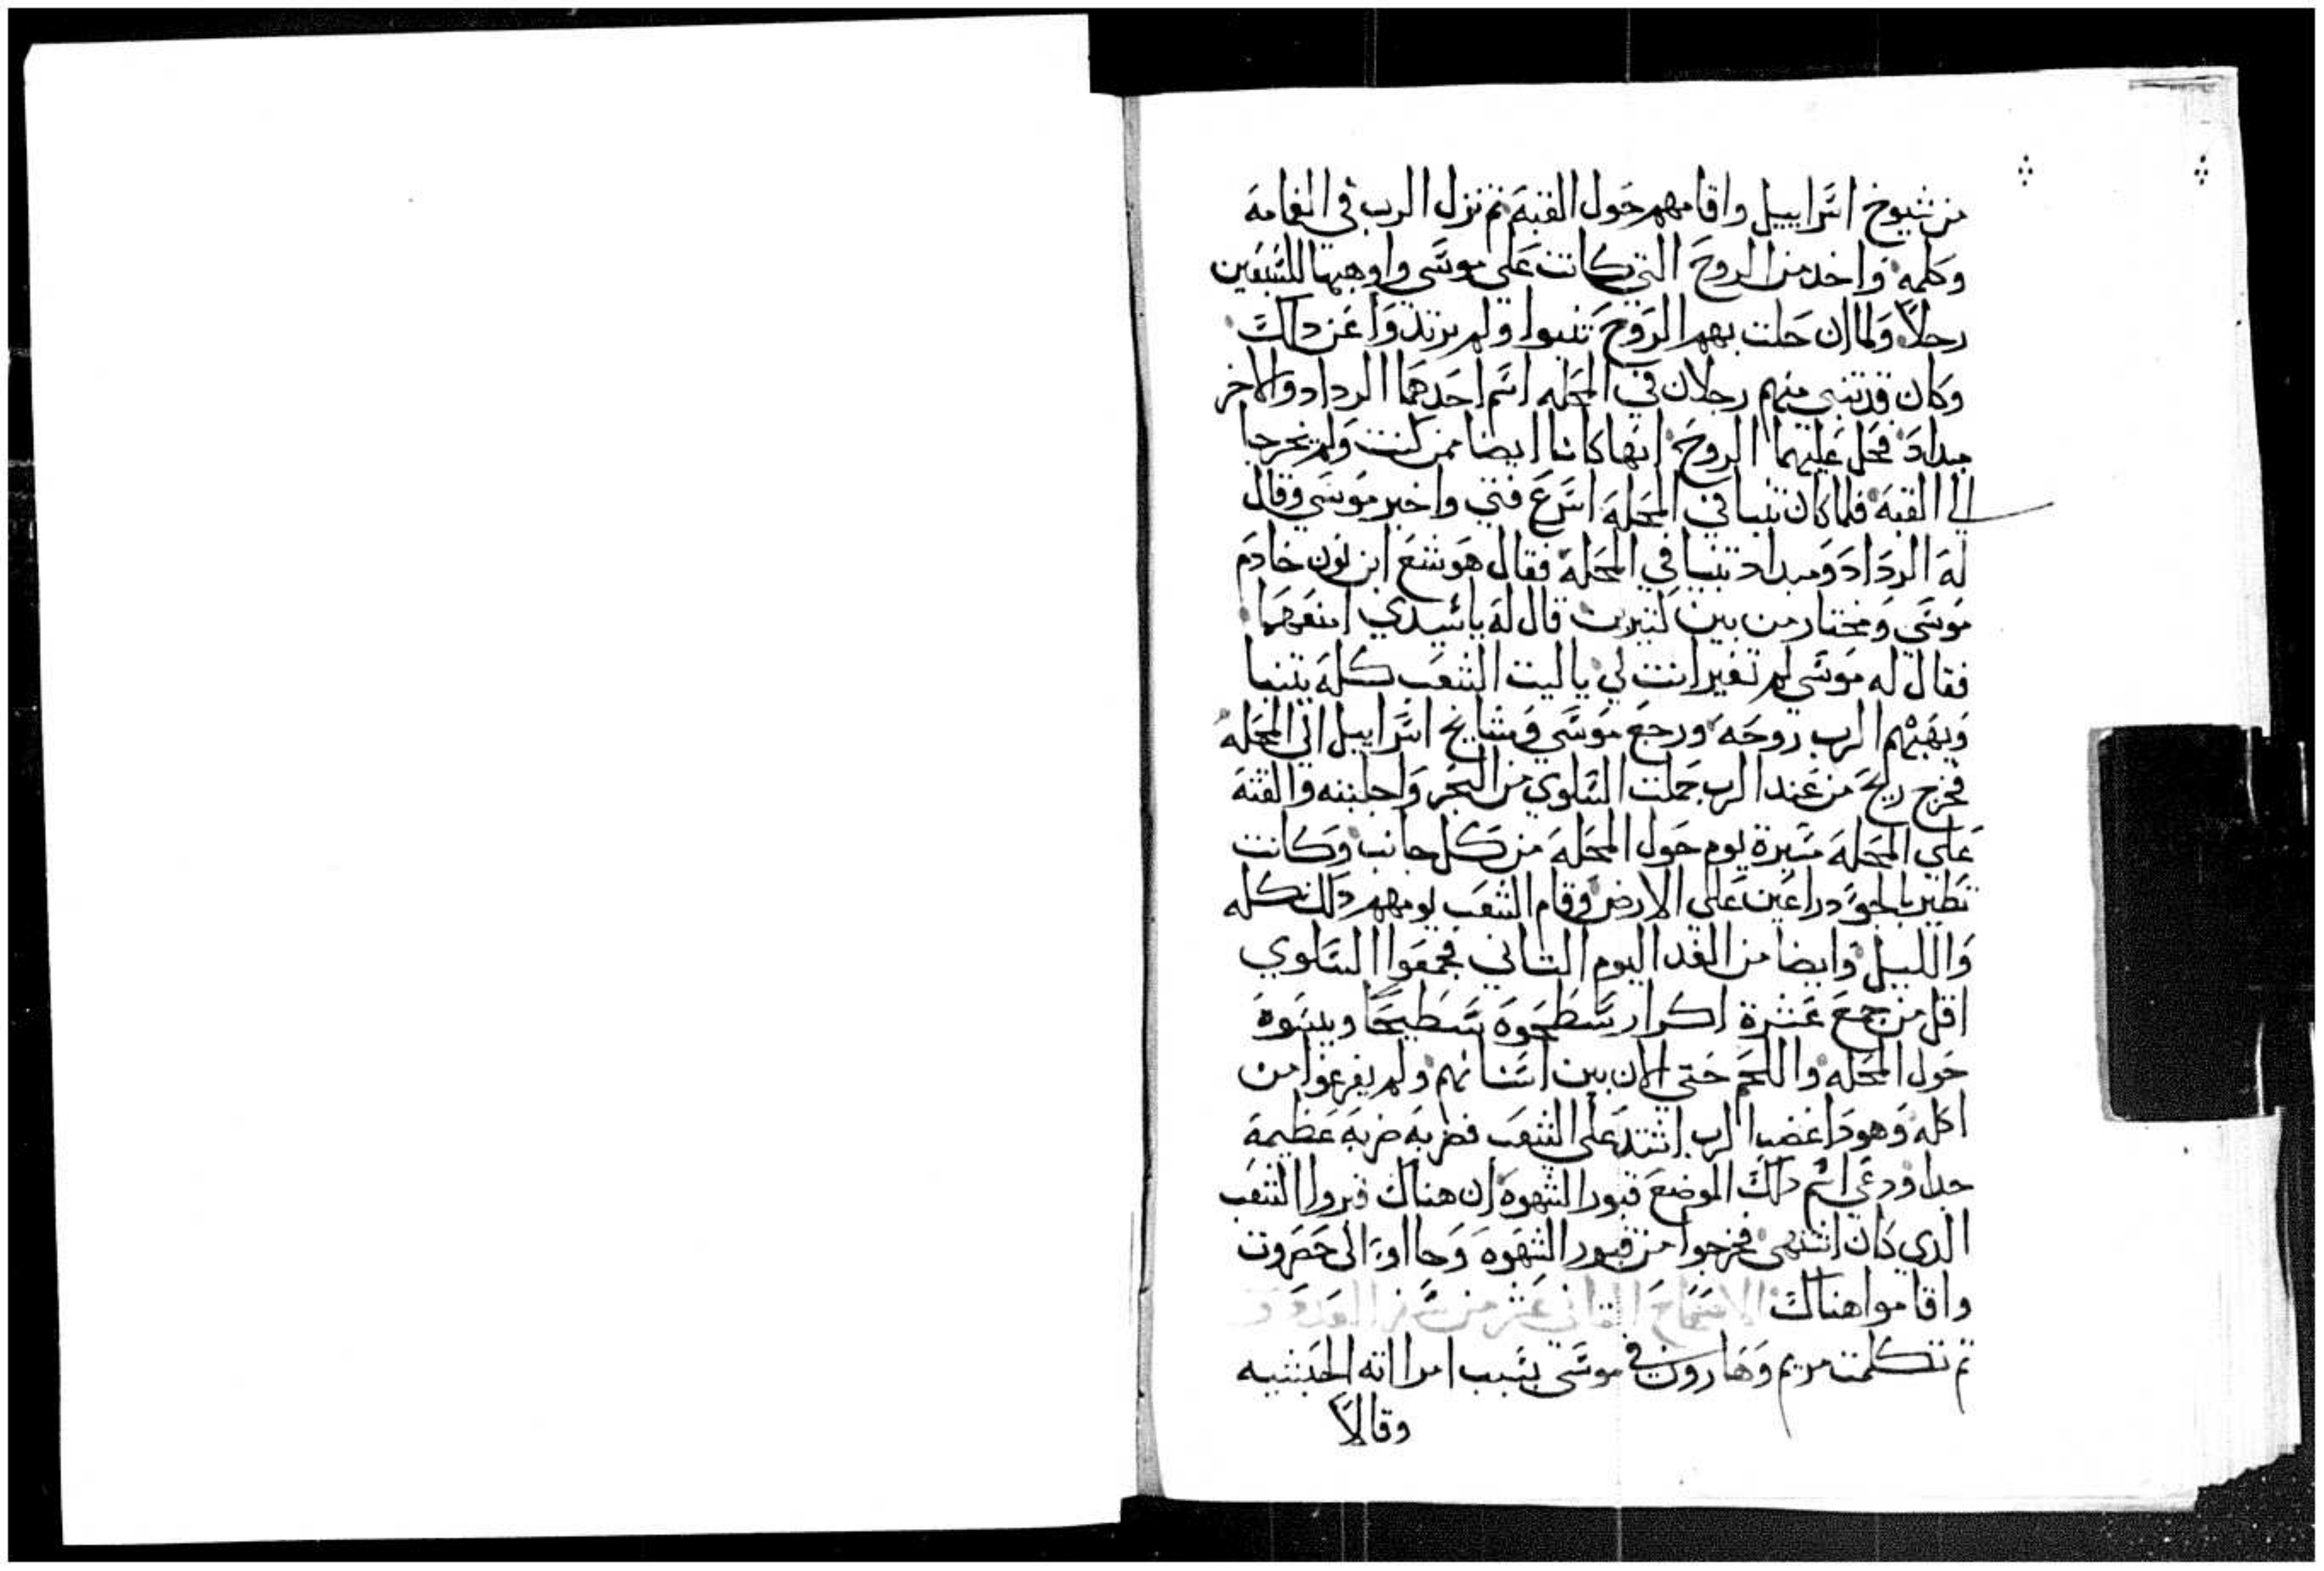 من شيوخ اسراييل واقامهم حول القبة ثم نزل الرب في الغامة
وكلمه واخد من الروح التي كانت علي موسي واوهبها للسبعين
رجلا ولما ان حلت بهم الروح تنبوا ولم يرتدوا عن دلك
وكان قد تنبي منهم رجلان في المحله اسم احدهما الرداد والاخر
ميداد فحل عليهما الروح انهما كانا ايضا ممن كتبت ولم يخرجا
الي القبة فلما كان تنبيا في المحلة اسرع فتي واخبر موسي وقال
له الرداد وميداد تنبيا في المحلة فقال هوشع ابن نون خادم
موسي ومختار من بين كتيرين قال له يا سيدي امنعهما
فقال له موسي لم تغير انت لي يا ليت الشعب كله يتنبا
ويهبهم الرب روحه ورجع موسي ومشايخ اسراييل الي المحله
فخرج ريح من عند الرب حملت السلوي من البحر واجلبته والقته
علي المحلة مسيرة يوم حول المحلة من كل جانب وكانت
تطير بالجو دراعين علي الارض وقام الشعب يومهم دلك كله
والليل وايضا من الغد اليوم التاني فجمعوا السلوي
اقل من جمع عشرة اكرار سطحوه تسطيحا ويبسوه
حول المحله واللحم حتي الان بين اسنانهم ولم يفرغوا من
اكله وهودا غضب الرب اشتد علي الشعب فضربه ضربه عظيمة
جدا ودعي اسم دلك الموضع قبور الشهوه ان هناك قبروا الشعب
الدي كان اشتهي فخرجوا من قبور الشهوه وجااوا الي حصروت
واقاموا هناك الاصحاح التاني عشر من سفر العدد
تم تكلمت مريم وهارون في موسي بسبب امراته الحبشيه
وقالا